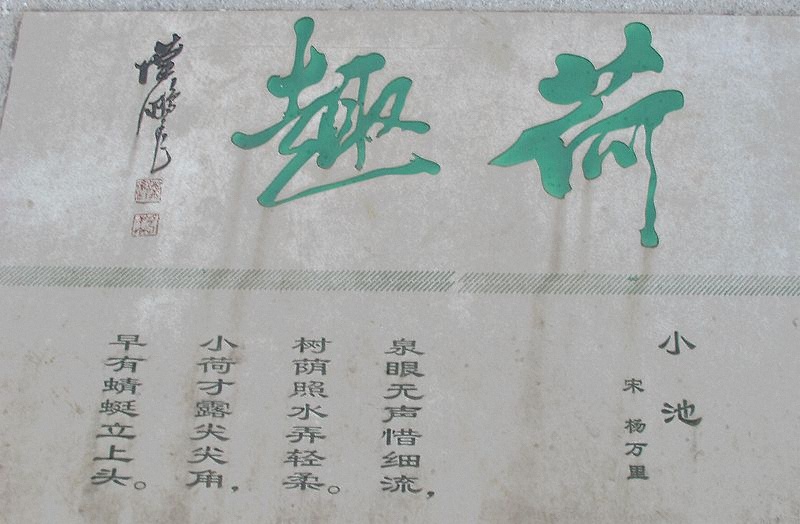 荷趣
小池
宋 杨万里
泉眼无声惜细流，
树荫照水弄轻柔。
小荷才露尖尖角，
早有蜻蜓立上头。